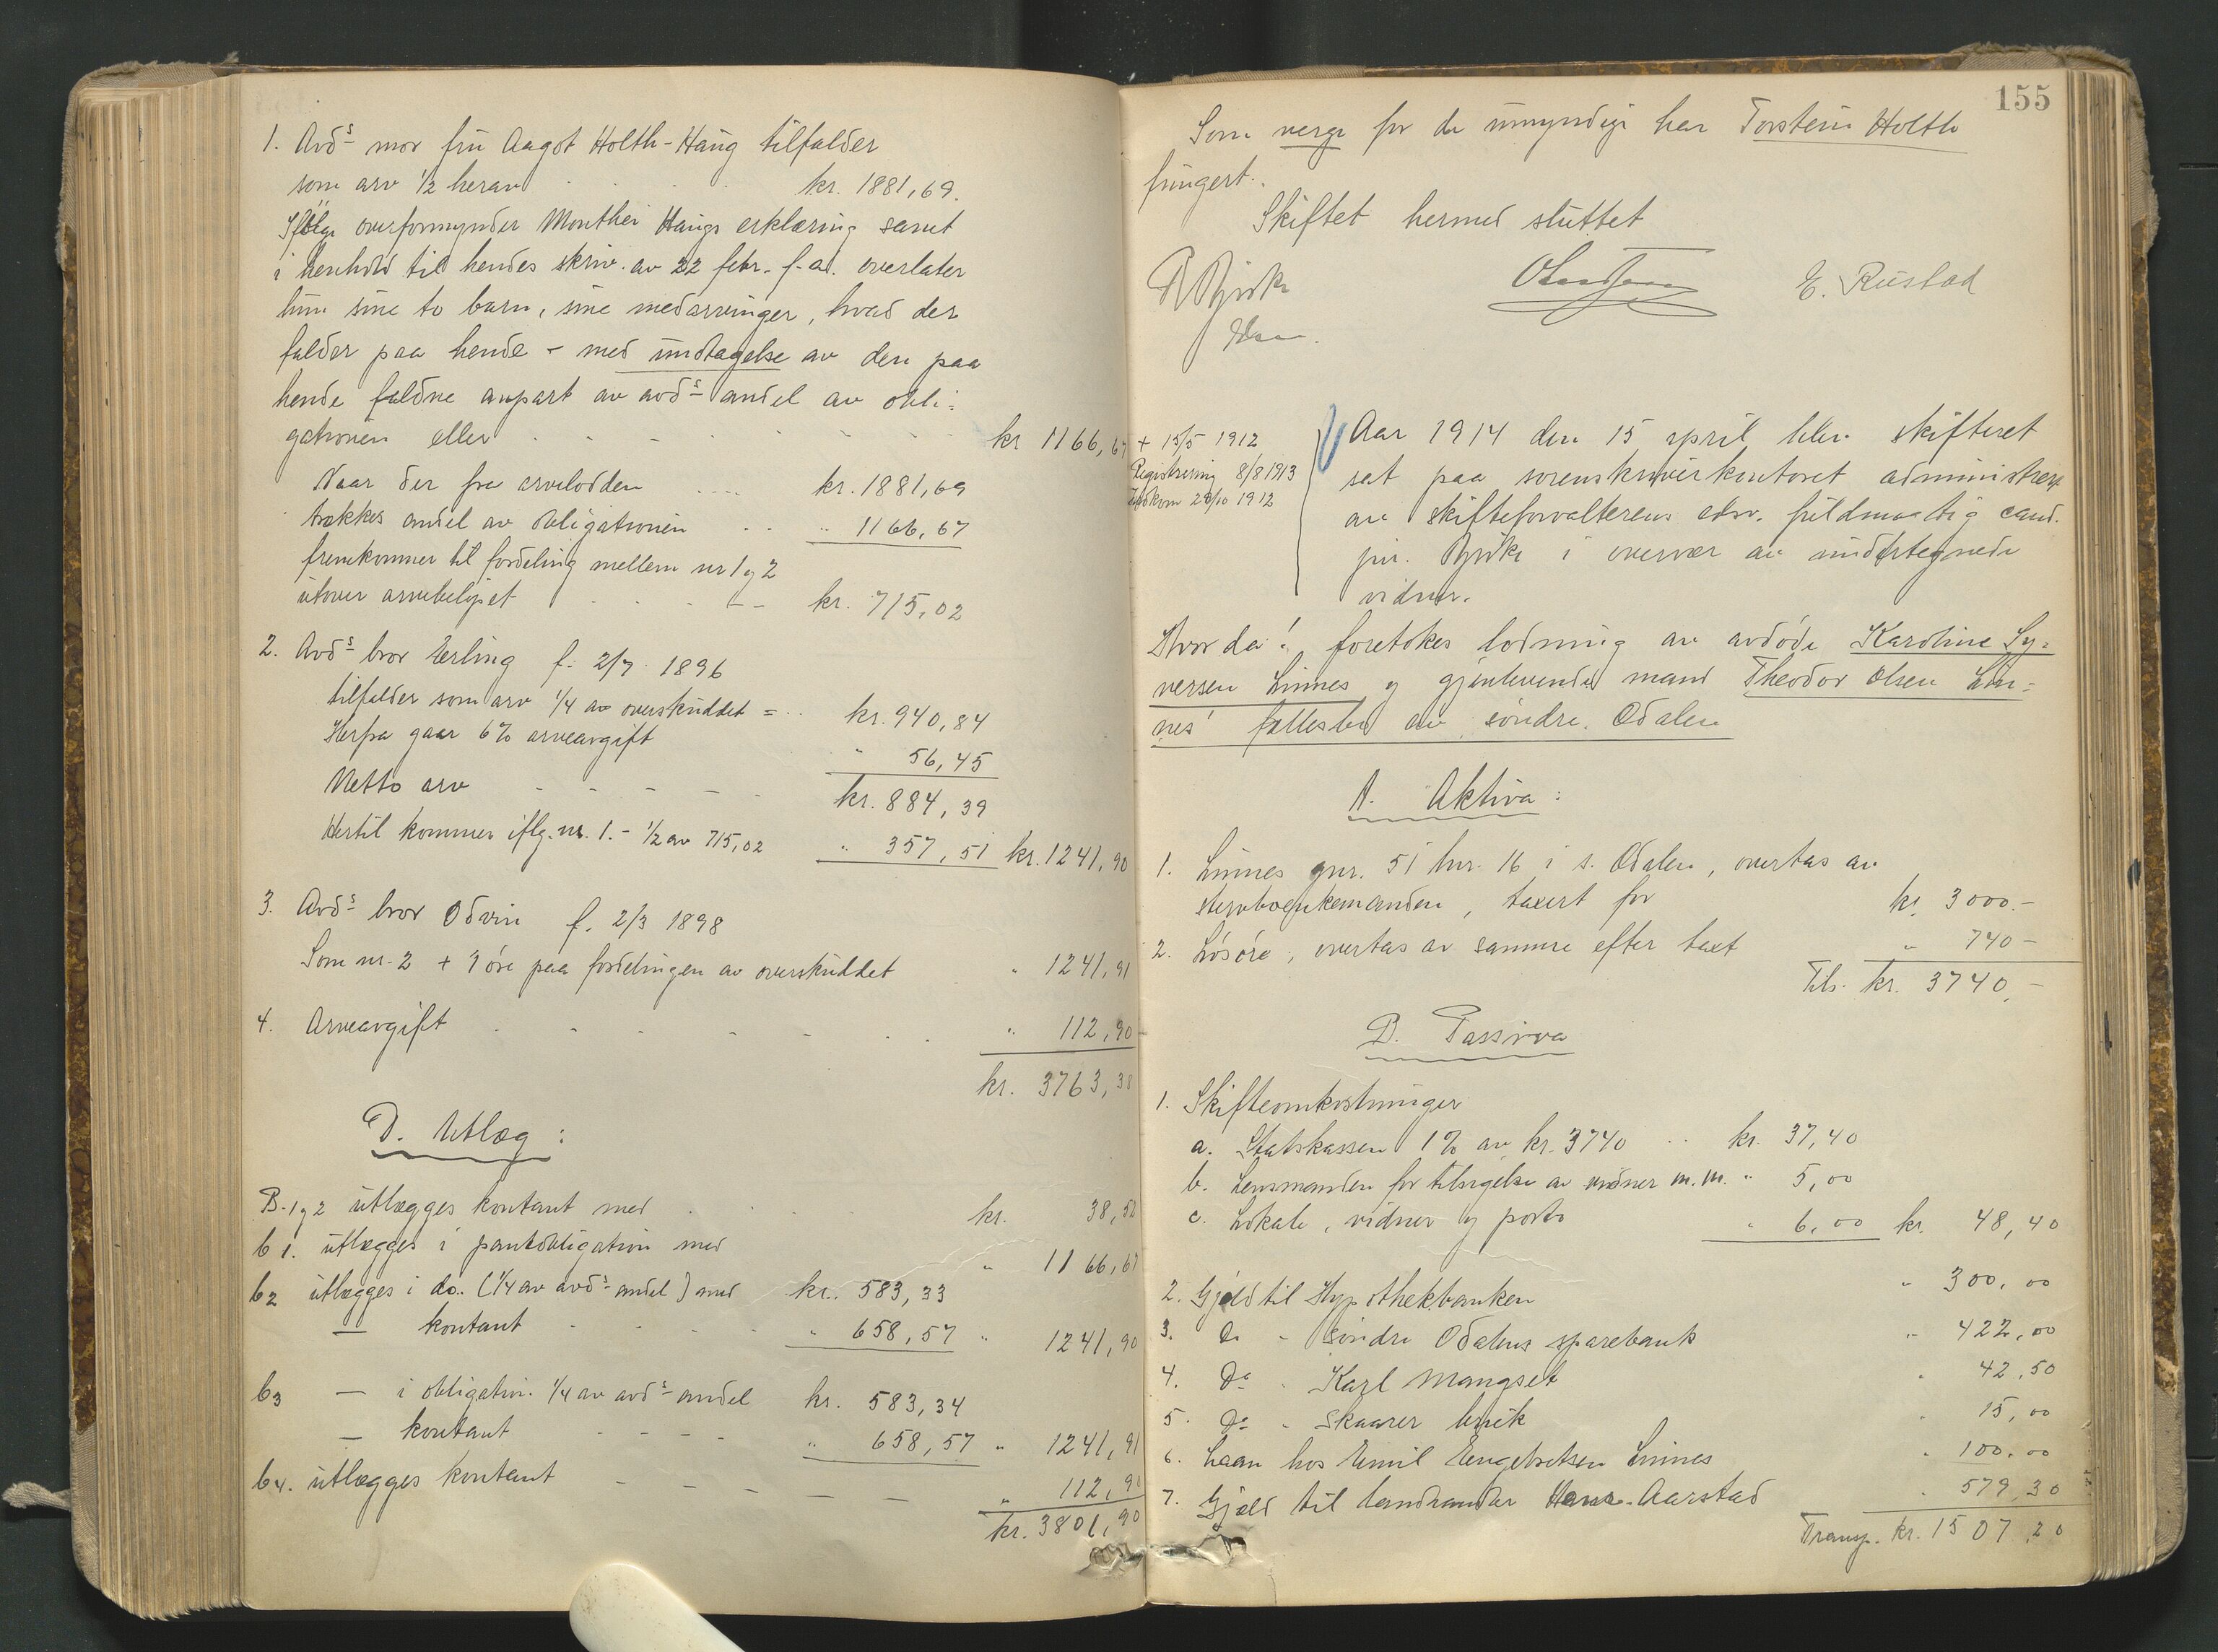 1. Avds mor fru Aagot Holth-Haug tilfalder
som arv 1/2 herav kr. 1881,69.
Ifölge overformynder Monthei Haugs erklæring samt
i henhold til hendes skriv. av 22 febr. f.a. overlater
hun sine to barn, sine medarvinger, hvad der
falder paa hende - med undtagelse av den paa
hende faldne anpart av avds andel av obli=
gationen eller kr 1166,67
Naar der fra arvelodden .... kr. 1881,69
trækkes andel av obligationen " 1166,67
fremkommer til fordeling mellem nr 1 og 2
utover arvebeløpet kr. 715,02
2. Avds bror Erling f. 2/7 1896
tilfalder som arv 1/4 av overskuddet = kr. 940,84
Herpa gaar 6% arveavgift " 56,45
Netto arv kr. 884,39
Hertil kommer iflg. nr. 1. - 1/2 av 715,02 " 357,51 kr. 1241,90
3. Avds bror Odvin f. 2/3 1898
Som nr. 2 + 1 öre paa fordelingen av overskuddet " 1241,91
4. Arveavgift " 112,90
kr. 3763,38
D. Utlæg:
B. 1 og 2 utlægges kontant med kr. 38,52
b 1. utlægges i pantobligation med " 1166,67
b2 utlægges i do. (1/4 av avds andel) med kr. 583,33
— kontant " 658,57 " 1241,90
b3 — i obligation 1/4 av avds andel kr. 583,34
— kontant " 658,57 " 1241,91
b4. utlægges kontant " 112,90
kr. 3801,90
155
Som verge for de umyndige har Torstein Holth
fungert.
Skiftet hermed sluttet
E. Rustad
+ 15/5 1912
Registrering 8/8 1913
Indkom 29/10 1912
Aar 1914 den 15 april blev skifteret
sat paa sorenskriverkontoret administrert
av skifteforvalterens edsv. fuldmægtig cand.
jur. i overvær av undertegnede
vidner.
Hvorda: foretokes lodning av avdöde Karoline Sy=
versen Linnes og gjenlevende mand Theodor Olsen Lin=
nes' fællesbo av söndre Odalen
A. Aktiva:
1. Linnes gnr. 51 bnr. 16 i s. Odalen, overtas av
sterboenkemanden, taxert for kr. 3000.-
2. Lösöre, overtas av samme efter taxt " 740-
Tils. kr. 3740,-
B. Passiva
1. Skifteomkostninger
a. Statskassen 1% av kr. 3740 .. kr. 37,40
b. Lensmanden for tilsigelse av vidner m.m. " 5,00
c. Lokale, vidner og porto " 6,00 kr. 48,40
2. Gjæld til Hypothekbanken " 300,00
3. Do - söndre Odalens sparebank " 422,00
4. Do - Karl Mangset " 42,50
5. Do - Skaarer bruk " 15,00
6. Laan hos Emil Engebretsen Linnes " 100,00
7. Gjæld til landhandler Hans Aarstad " 579,30
Transp. kr. 1507,20